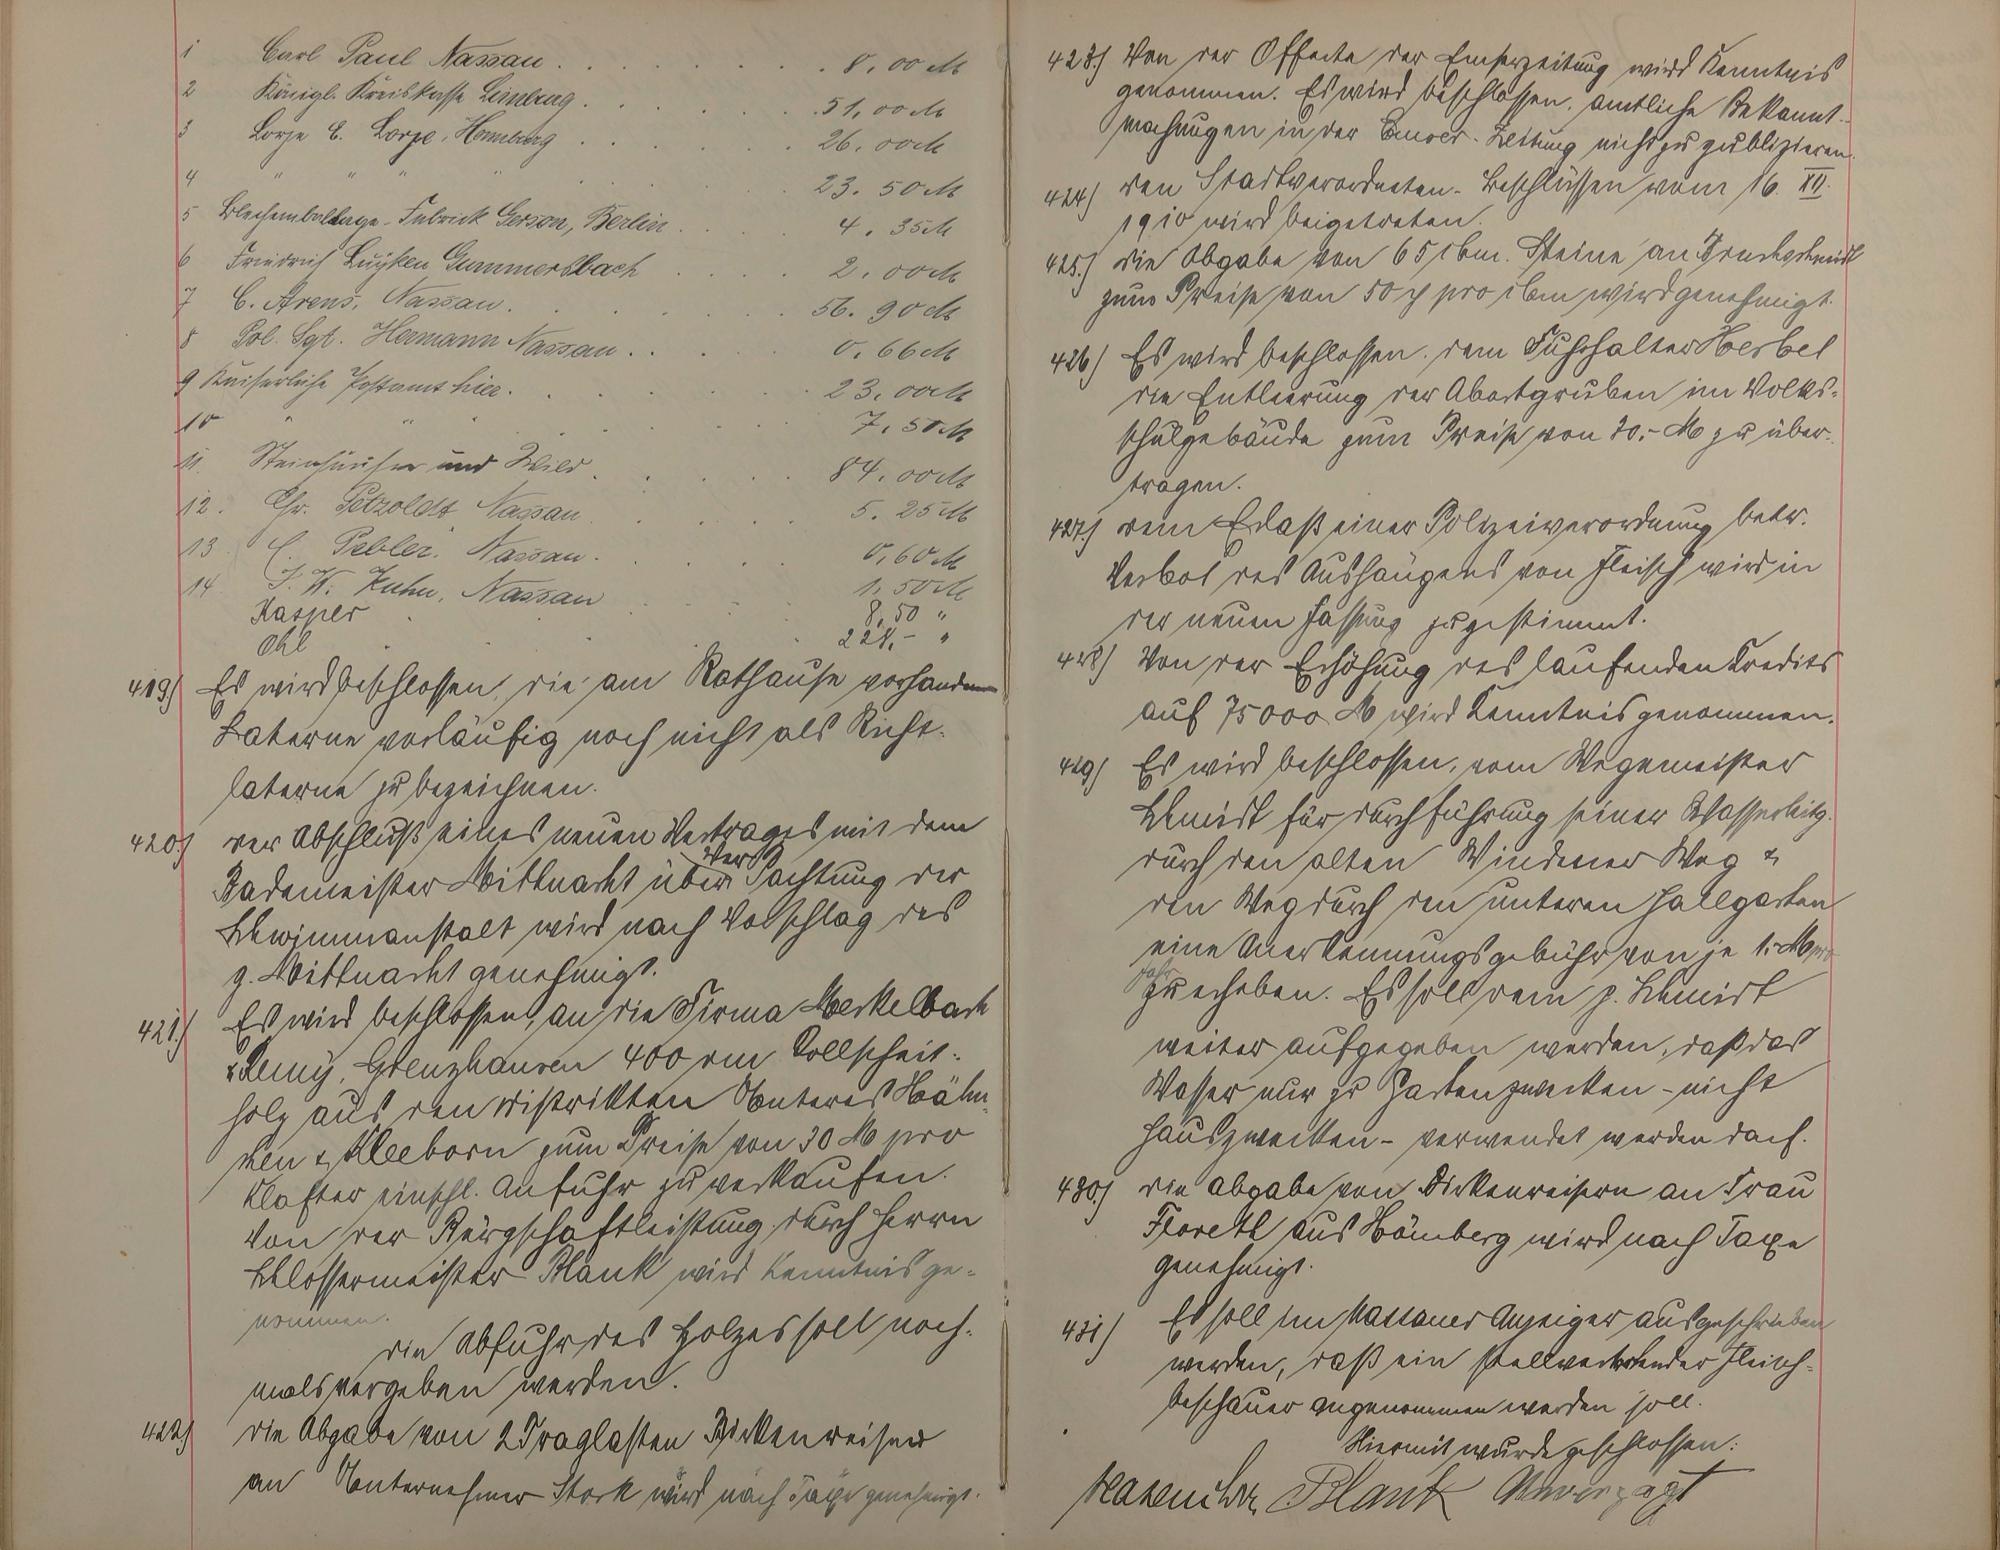 1 Carl Paul Nassau . . . . . . . . 8,00 M
2 Königl. Kreiskasse Limburg . . . . . . 51,00 M
3 Lorze C. Lorze, Homburg . . . . . . 26.00 M
4 " " " " . . . . 23.50 M
5 Blechemballage-Fabrick Gerson, Berlin . . . . 4.35 M
6 Friedrich Luyken Gummersbach . . . . 2.00 M
7 C. Arens, Nassau . . . . . . . 56.90 M
8 Pol. Sgt. Hermann Nassau . . . . . 0.66 M
9 Kaiserliche Postamt hier . . . . . . 23,00 M
10 " " . . . . . 7,50 M
11. Steinhäuser und Wild . . . . . 84,00 M
12. Chr. Petzoldt Nassau . . . . . 5.25 M
13 C. Pebler. Nassau . . . . . 0,60 M
14 J. W. Kuhn, Nassau . . . . 1,50 M
Kasper . . . . 8,50 "
Ohl . . . . 221,- "
419) Es wird beschlossen, die am Rathause vorhandene
Laterne vorläufig noch nicht als Richt-
laterne zu bezeichnen.
420.) Der Abschluß eines neuen Vertrages mit dem
Bademeister Mittnacht über Verpachtung der
Schwimmanstalt wird nach Vorschlag des
p. Mittnacht genehmigt.
421.) Es wird beschlossen, an die Firma Merkelbach
& Remy, Grenzhausen 400 rm Rollscheit-
holz aus den Distrikten Unteres Hähn-
chen & Kleeborn zum Preise von 30 M pro
Klafter einschl. Anfuhr zu verkaufen.
Von der Bürgschaftleistung durch Herrn
Schlossermeister Blank wird Kenntnis ge-
nommen.
Die Abfuhr des Holzes soll noch-
mals vergeben werden.
422) Die Abgabe von 2 Traglasten Birkenreiser
an Unternehmer Stork wird nach Taxe genehmigt.
423.) Von der Offerte der Emserzeitung wird Kenntnis
genommen. Es wird beschlossen, amtliche Bekannt-
machungen in der Emser-Zeitung nicht zu publizieren.
424) Den Stadtverordneten-Beschlüssen vom 16. XII.
1910 wird beigetreten.
425.) Die Abgabe von 65 cbm. Steine an
zum Preise von 50 ₰ pro cbm wird genehmigt.
426) Es wird beschlossen, dem Fuhrhalter Herbel
die Entleerung der Abortgruben im Volks-
schulgebäude zum Preise von 70,- M zu über-
tragen.
427.) Dem Erlaß einer Polizeiverordnung betr.
Verbot des Aushängens von Fleisch wird in
der neuen Fassung zugestimmt.
428) Von der Erhöhung des laufenden Kredits
auf 75000 M wird Kenntnis genommen.
429) Es wird beschlossen, vom Wegemeister
Schmidt für Durchführung seiner Wasserleitg.
durch den alten Windener Weg &
den Weg durch den unteren Hallgarten
eine Anerkennungsgebühr von je 1.- M pro
Jahr
zu erheben. Es soll dem p. Schmidt
weiter aufgegeben werden, daß das
Wasser nur zu Gartenzwecken - nicht
Hauszwecken - verwendet werden darf.
430.) Die Abgabe von Birkenreisern an Frau
Floreth aus Hömberg wird nach Taxe
genehmigt.
431) Es soll im Nassauer Anzeiger ausgeschrieben
werden, daß ein stellvertretender Fleisch-
beschauer angenommen werden soll.
Hiermit wurde geschlossen:
Hasenclever Blank Unverzagt